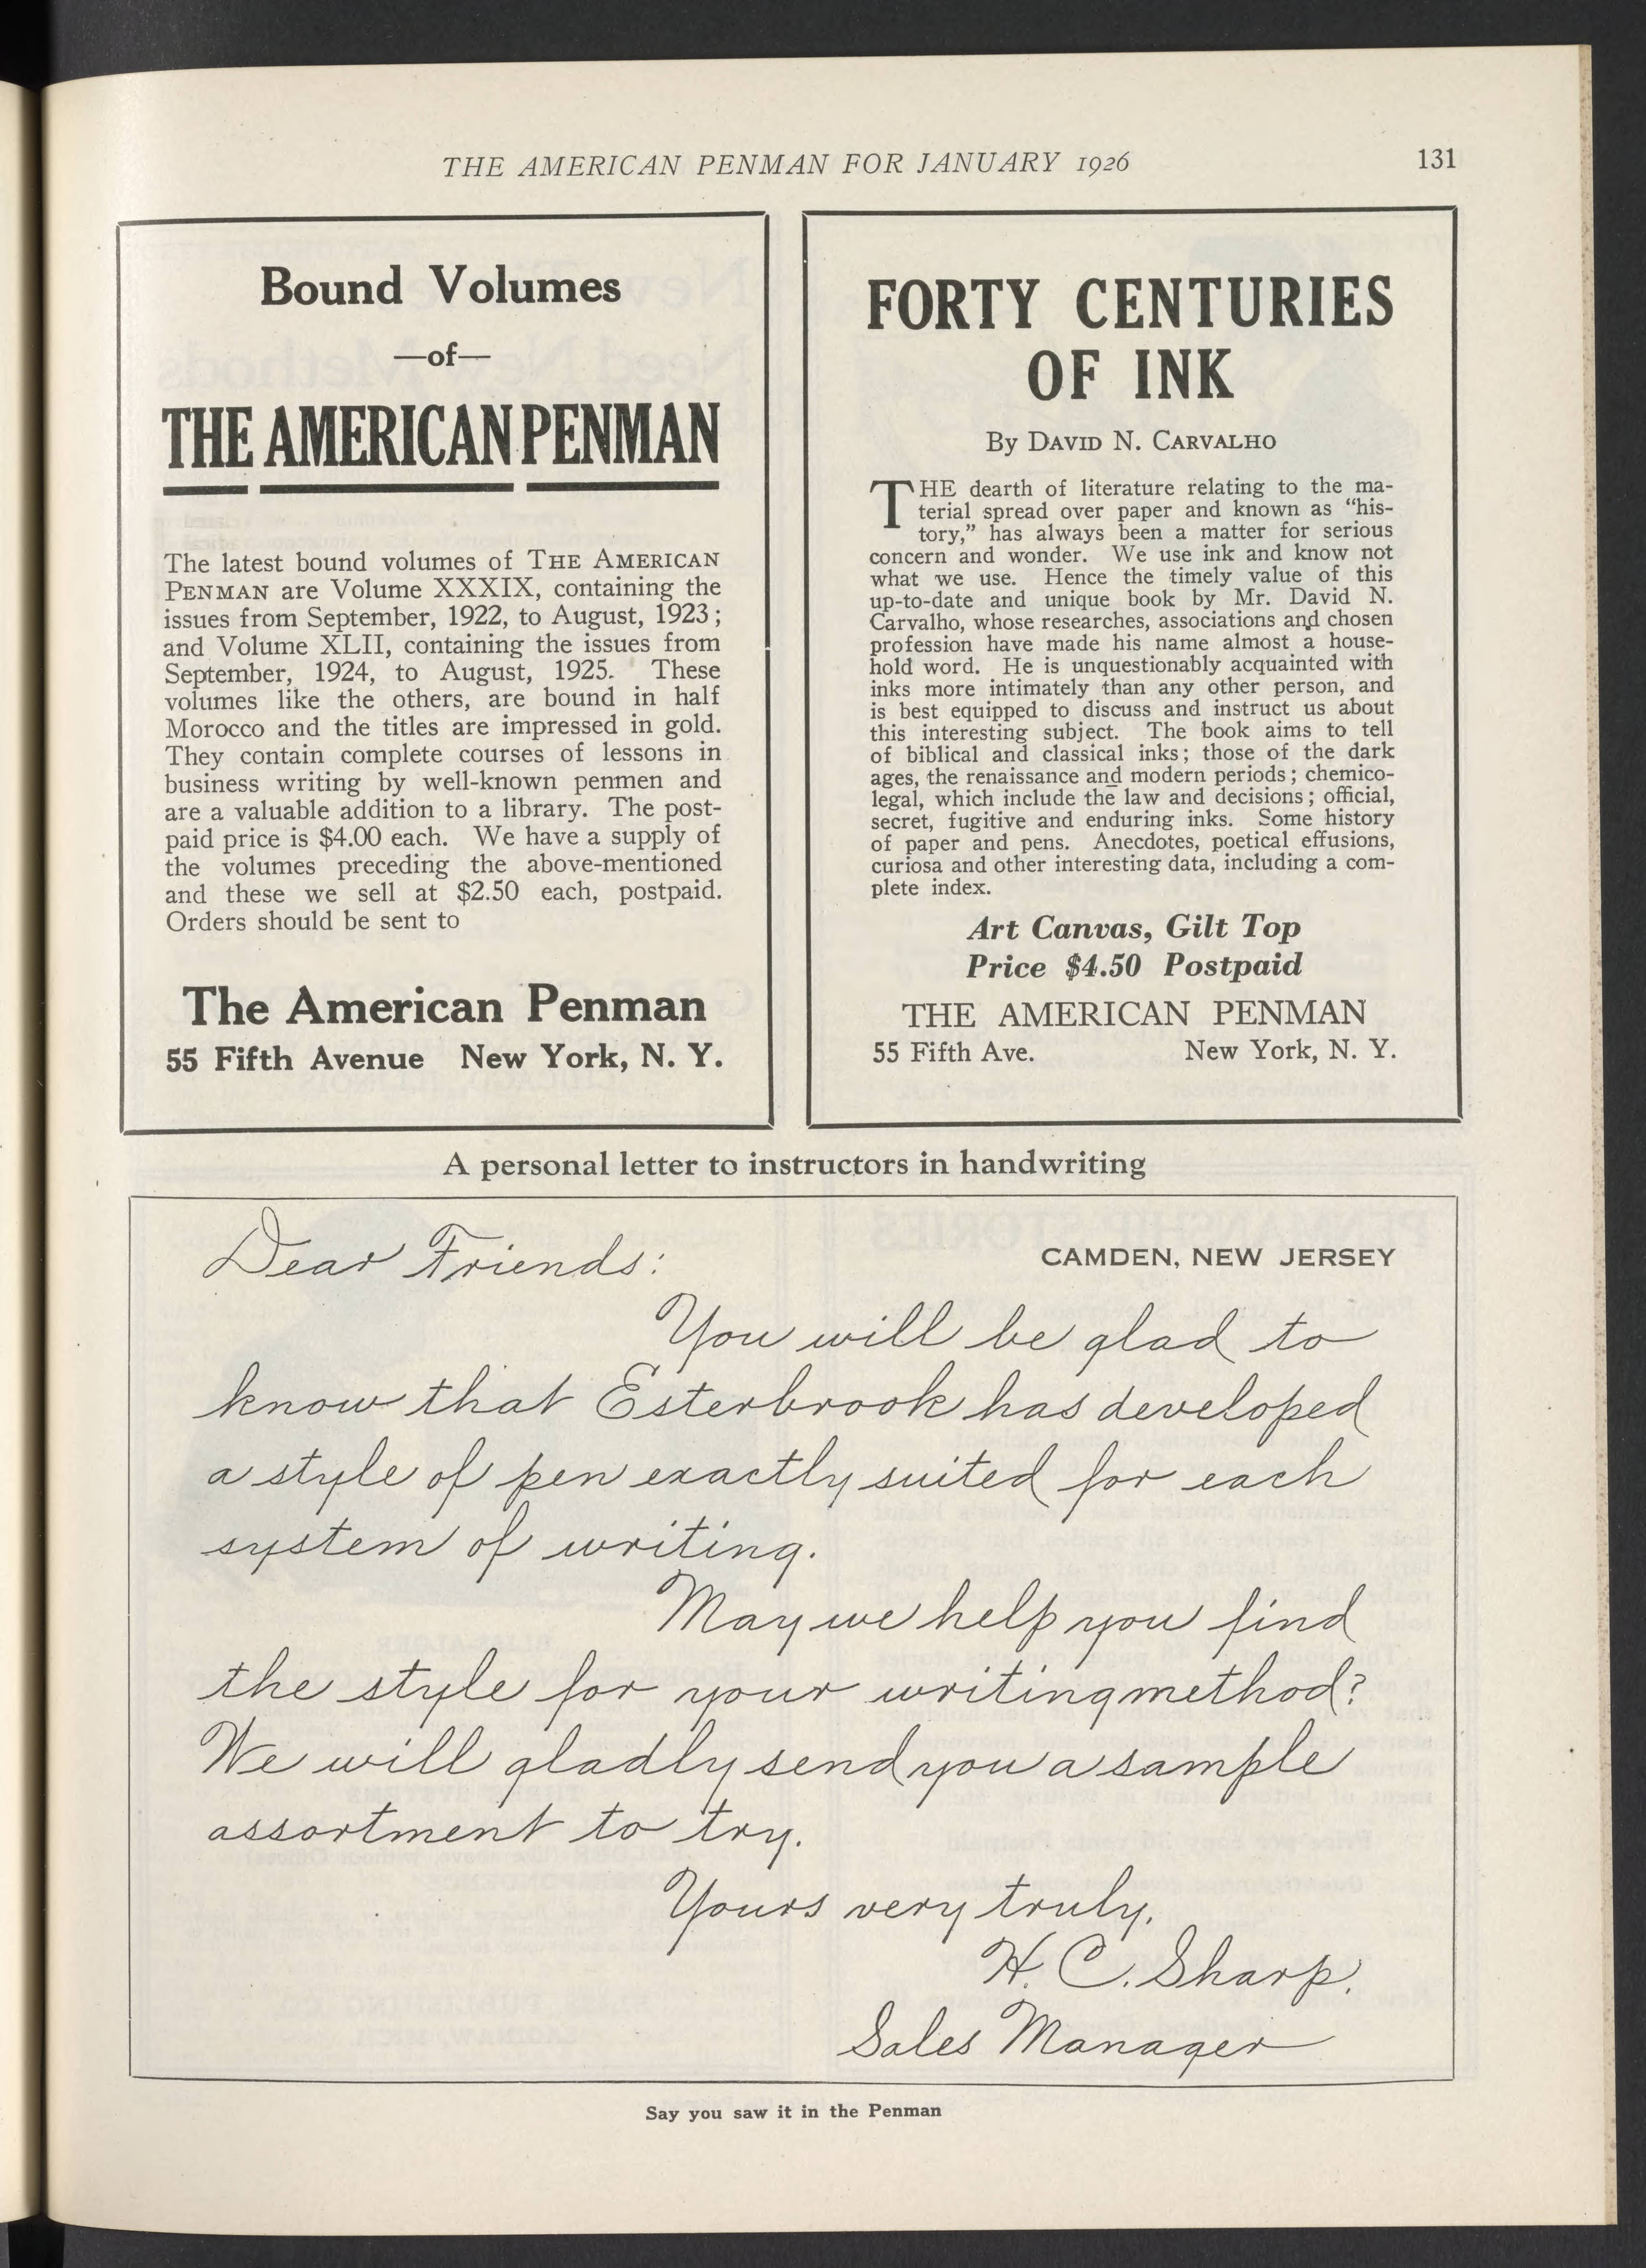 THE AMERICAN PENMAN FOR JANUARY 1926
131
Bound Volumes
—of—
THE AMERICAN PENMAN
The latest bound volumes of THE AMERICAN
PENMAN are Volume XXXIX, containing the
issues from September, 1922, to August, 1923;
and Volume XLII, containing the issues from
September, 1924, to August, 1925. These
volumes like the others, are bound in half
Morocco and the titles are impressed in gold.
They contain complete courses of lessons in
business writing by well-known penmen and
are a valuable addition to a library. The post-
paid price is $4.00 each. We have a supply of
the volumes preceding the above-mentioned
and these we sell at $2.50 each, postpaid.
Orders should be sent to
The American Penman
55 Fifth Avenue New York, N. Y.
FORTY CENTURIES
OF INK
By DAVID N. CARVALHO
THE dearth of literature relating to the ma-
terial spread over paper and known as “his-
tory,” has always been a matter for serious
concern and wonder. We use ink and know not
what we use. Hence the timely value of this
up-to-date and unique book by Mr. David N.
Carvalho, whose researches, associations and chosen
profession have made his name almost a house-
hold word. He is unquestionably acquainted with
inks more intimately than any other person, and
is best equipped to discuss and instruct us about
this interesting subject. The book aims to tell
of biblical and classical inks; those of the dark
ages, the renaissance and modern periods; chemico-
legal, which include the law and decisions; official,
secret, fugitive and enduring inks. Some history
of paper and pens. Anecdotes, poetical effusions,
curiosa and other interesting data, including a com-
plete index.
Art Canvas, Gilt Top
Price $4.50 Postpaid
THE AMERICAN PENMAN
55 Fifth Ave. New York, N. Y.
A personal letter to instructors in handwriting
Dear Friends:
CAMDEN, NEW JERSEY
You will be glad to
know that Esterbrook has developed
a style of pen exactly suited for each
system of writing.
May we help you find
the style for your writing method?
We will gladly send you a sample
assortment to try.
Yours very truly,
H. C. Sharp,
Sales Manager
Say you saw it in the Penman